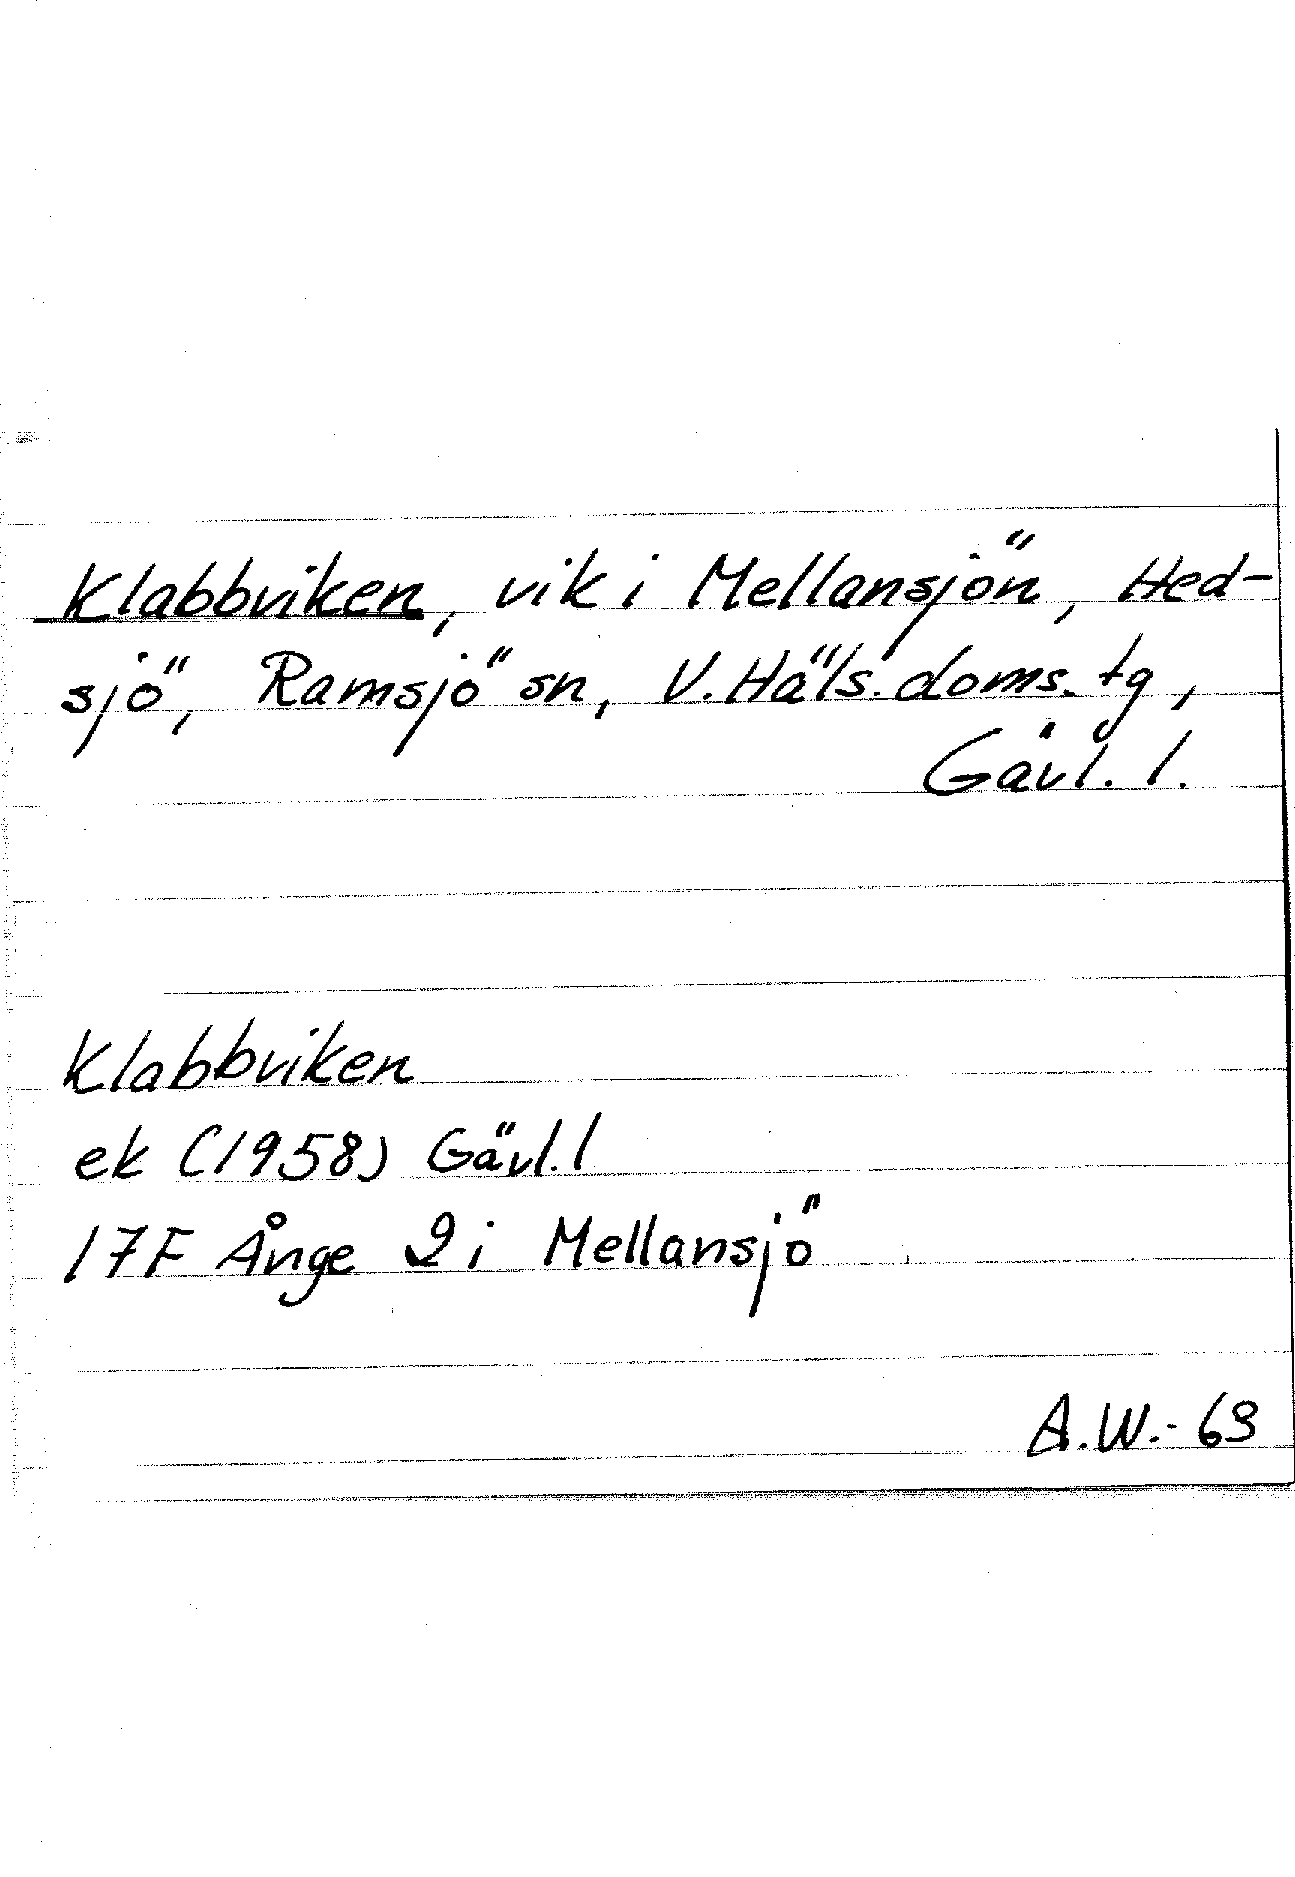 Klabbviken, vik i Mellansjön, Hed-
sjö, Ramsjö sn, V. Häls. doms. tg,
Gävl. l.
Klabbviken
ek (1958) Gävl. l
17F Ånge 2i Mellansjö
A.W.-69